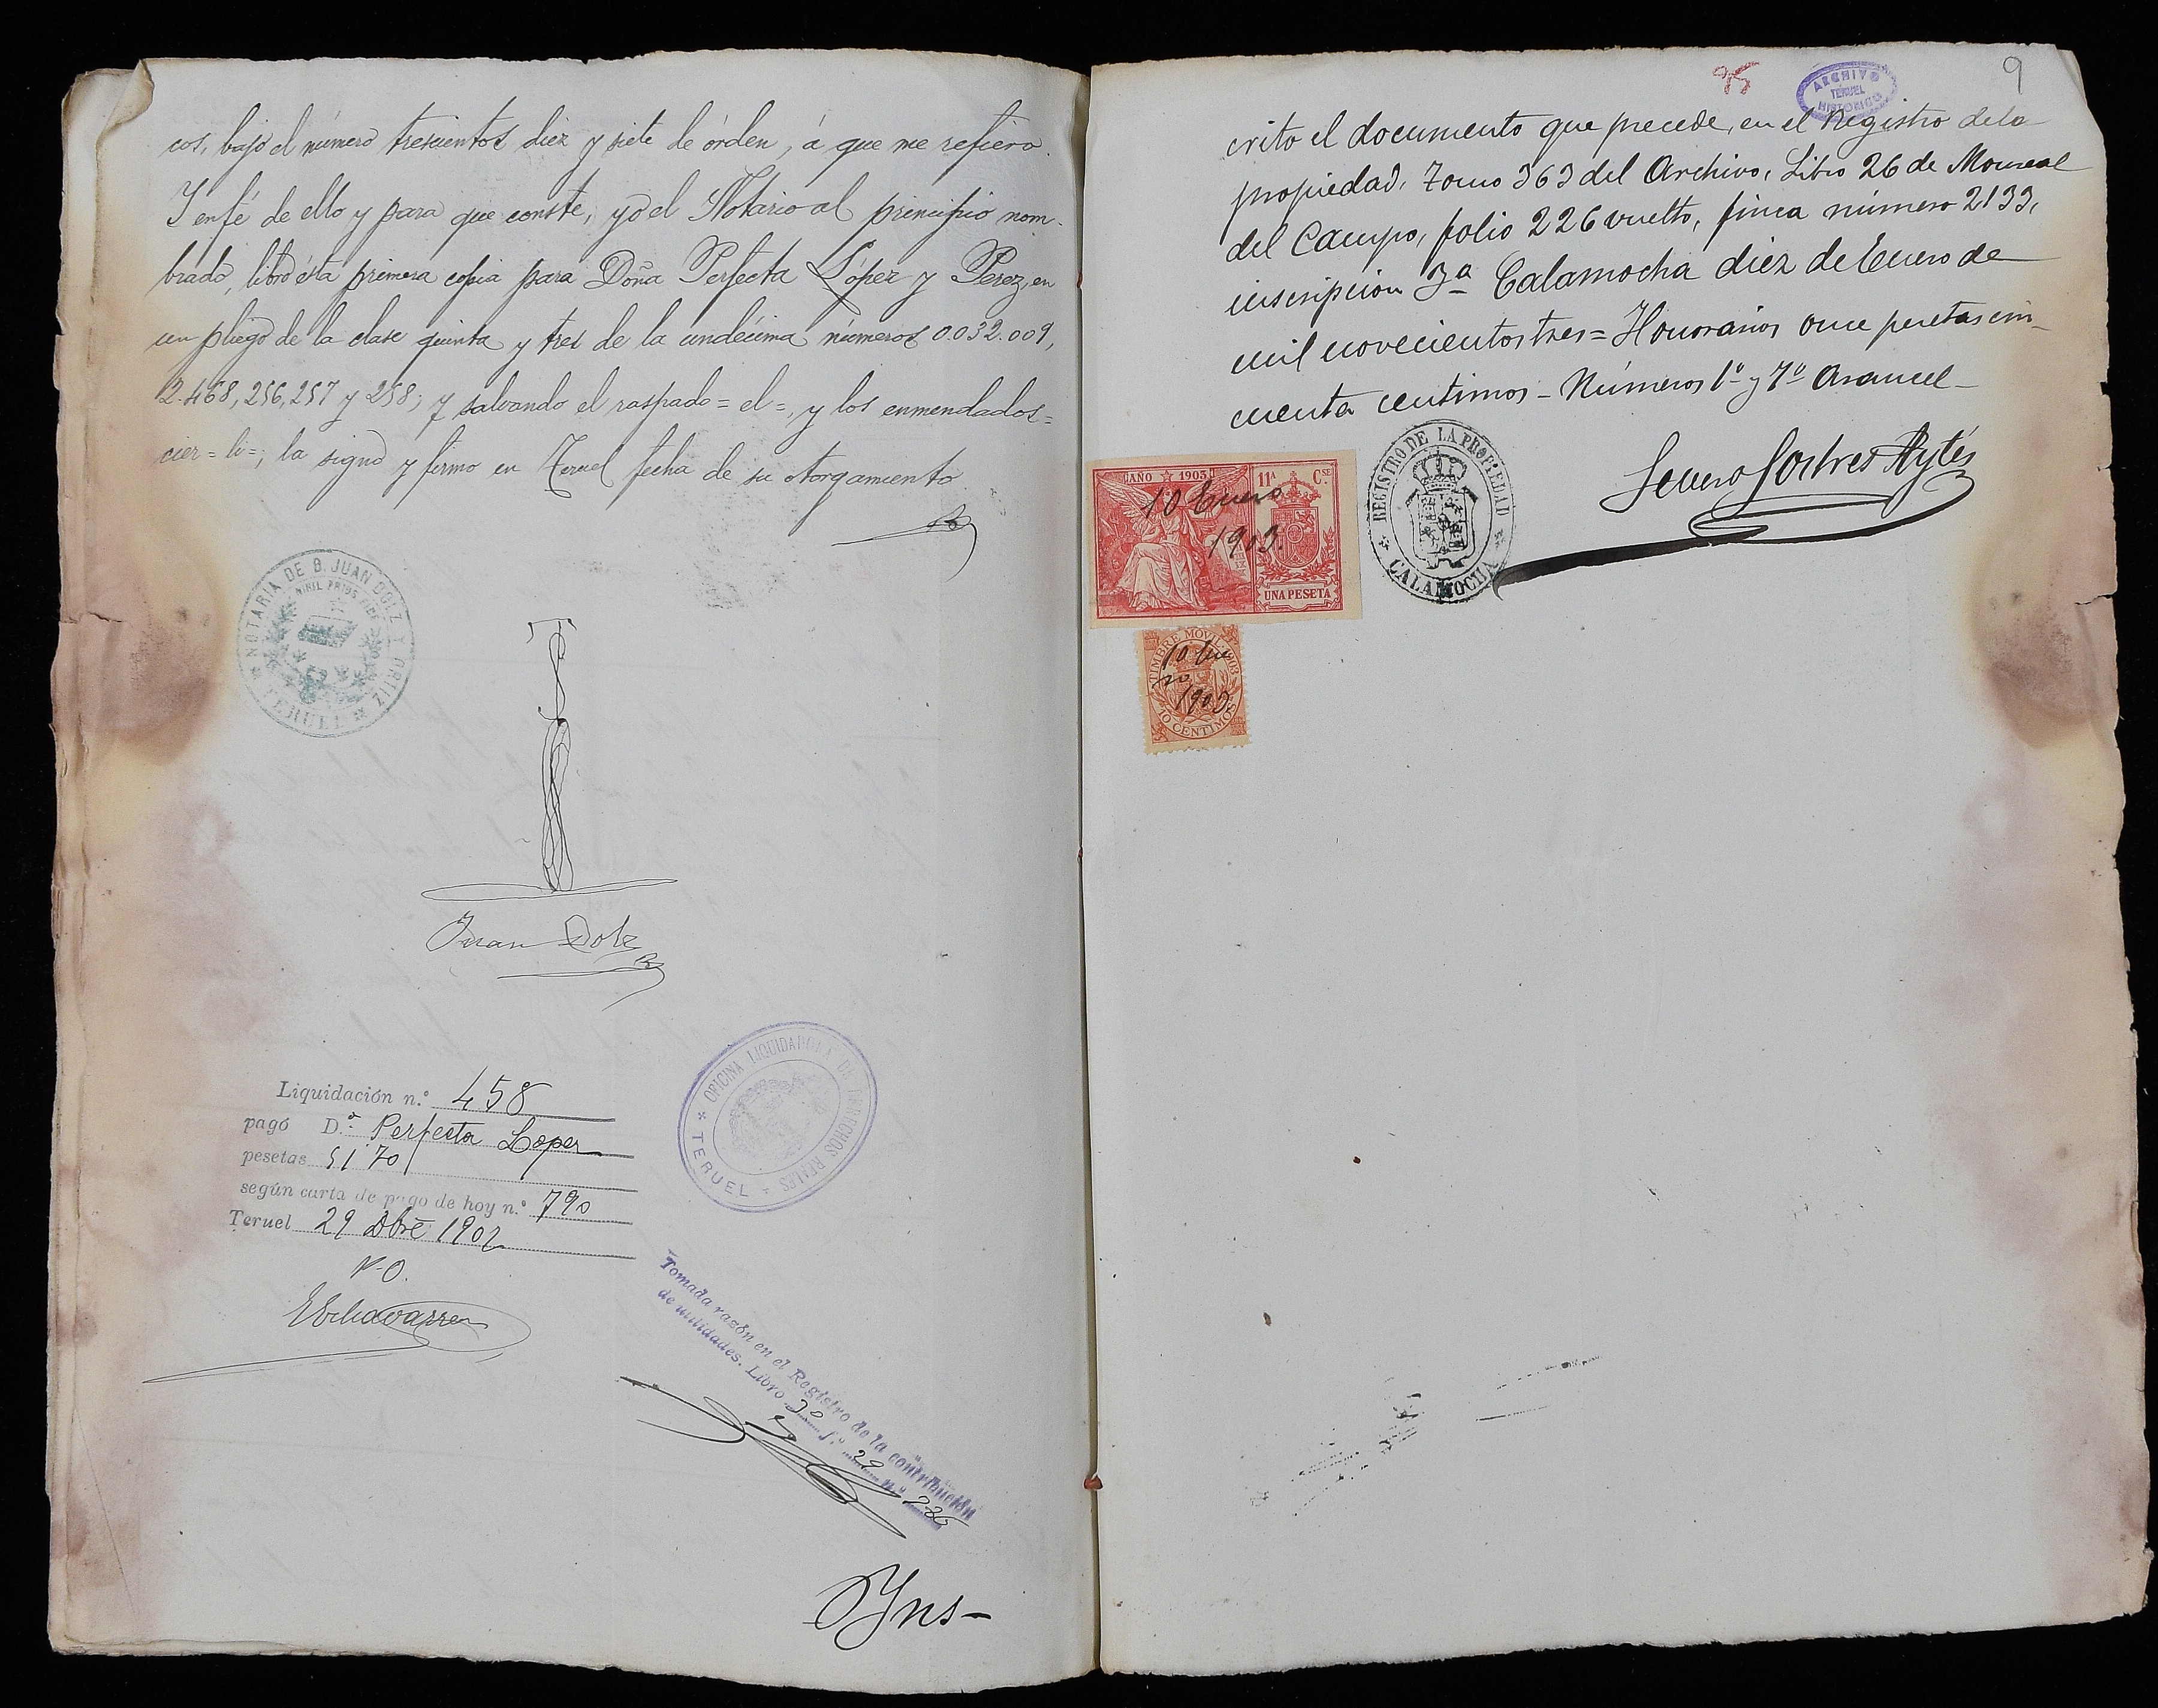 cos, bajo el número trescientos diez y siete de órden, á que me refiero.
Y en fé de ello y para que conste, yo el Notario al principio nom-
brado, libro ésta primera copia para Doña Perfecta López y Perez, en
un pliego de la clase quinta y tres de la undécima números 0.032.009,
2.468,256,257 y 258; y salvando el raspado = el =, y los enmendados =
cier = lo =; la signo y firmo en Teruel fecha de su otorgamiento
NOTARIA DE D. JUAN DOLZ Y ORTIZ
NIHIL PRIUS FIDE
TERUEL
Juan Dolz
OFICINA LIQUIDADORA DE DERECHOS REALES
TERUEL
Liquidación n.º 458
pagó D.ª Perfecta Lopez
pesetas 51'70
según carta de pago de hoy n.º 790
Teruel 29 Dbre 1902
P.O.
Echavarren
Tomada razón en el Registro de la contribución
de utilidades. Libro 30 f.º 29 n.º 226
Yns-
95
ARCHIVO
TERUEL
HISTORICO
9
crito el documento que precede, en el Registro de la
propiedad, Tomo 363 del Archivo, Libro 26 de Monreal
del Campo, folio 226 vuelto, finca número 2133,
inscripcion 3ª Calamocha diez de Enero de
mil novecientos tres = Honorarios once pesetas cin-
cuenta centimos - Números 1º y 7º Arancel -
Severo Sostres Aytés
REGISTRO DE LA PROPIEDAD
CALAMOCHA
AÑO 1903
11ª Cse
10 Enero
1903.
UNA PESETA
TIMBRE MOVIL 1903
10 Ene
ro
1903
10 CENTIMOS